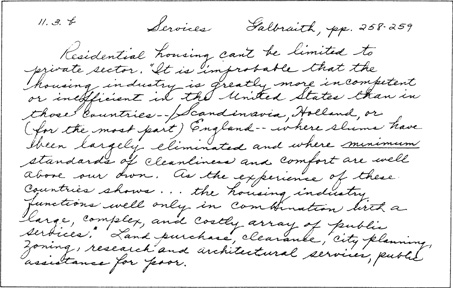 11.3.f Services Galbraith, pp. 258-259
Residential housing can't be limited to
private sector. "It is improbable that the
housing industry is greatly more incompetent
or inefficient in the United States than in
those countries--Scandinavia, Holland, or
(for the most part) England--where slums have
been largely eliminated and where minimum
standards of cleanliness and comfort are well
above our own. As the experience of these
countries shows ... the housing industry
functions well only in combination with a
large, complex, and costly array of public
services." Land purchase, clearance, city planning,
zoning, research and architectural services, public
assistance for poor.